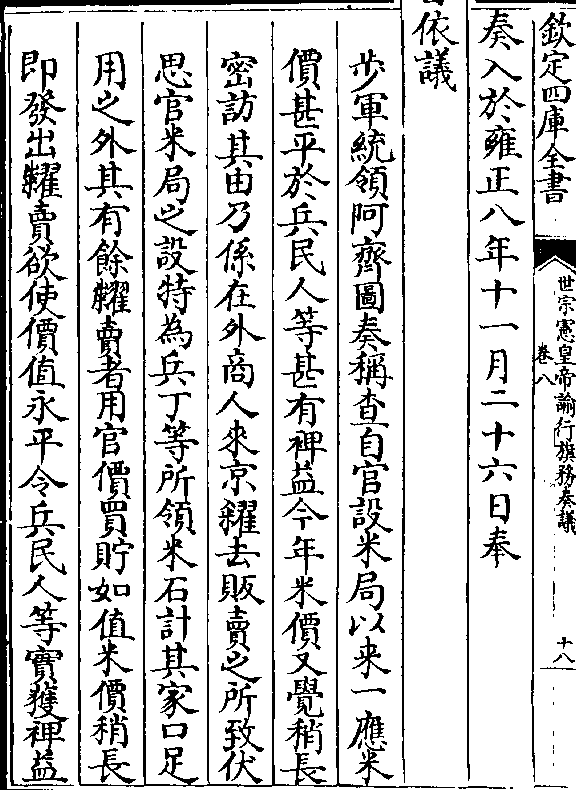 欽定四庫全書
世宗憲皇帝諭行旗務奏議
卷八
十八
奏入於雍正八年十一月二十六日奉
旨依議
步軍統領阿齊圖奏稱查自官設米局以来一應米
價甚平於兵民人等甚有裨益今年米價又覺稍長
密訪其由乃係在外商人來京糴去販賣之所致伏
思官米局之設特為兵丁等所領米石計其家口足
用之外其有餘糶賣者用官價買貯如值米價稍長
即發出糶賣欲使價值永平令兵民人等實獲裨益